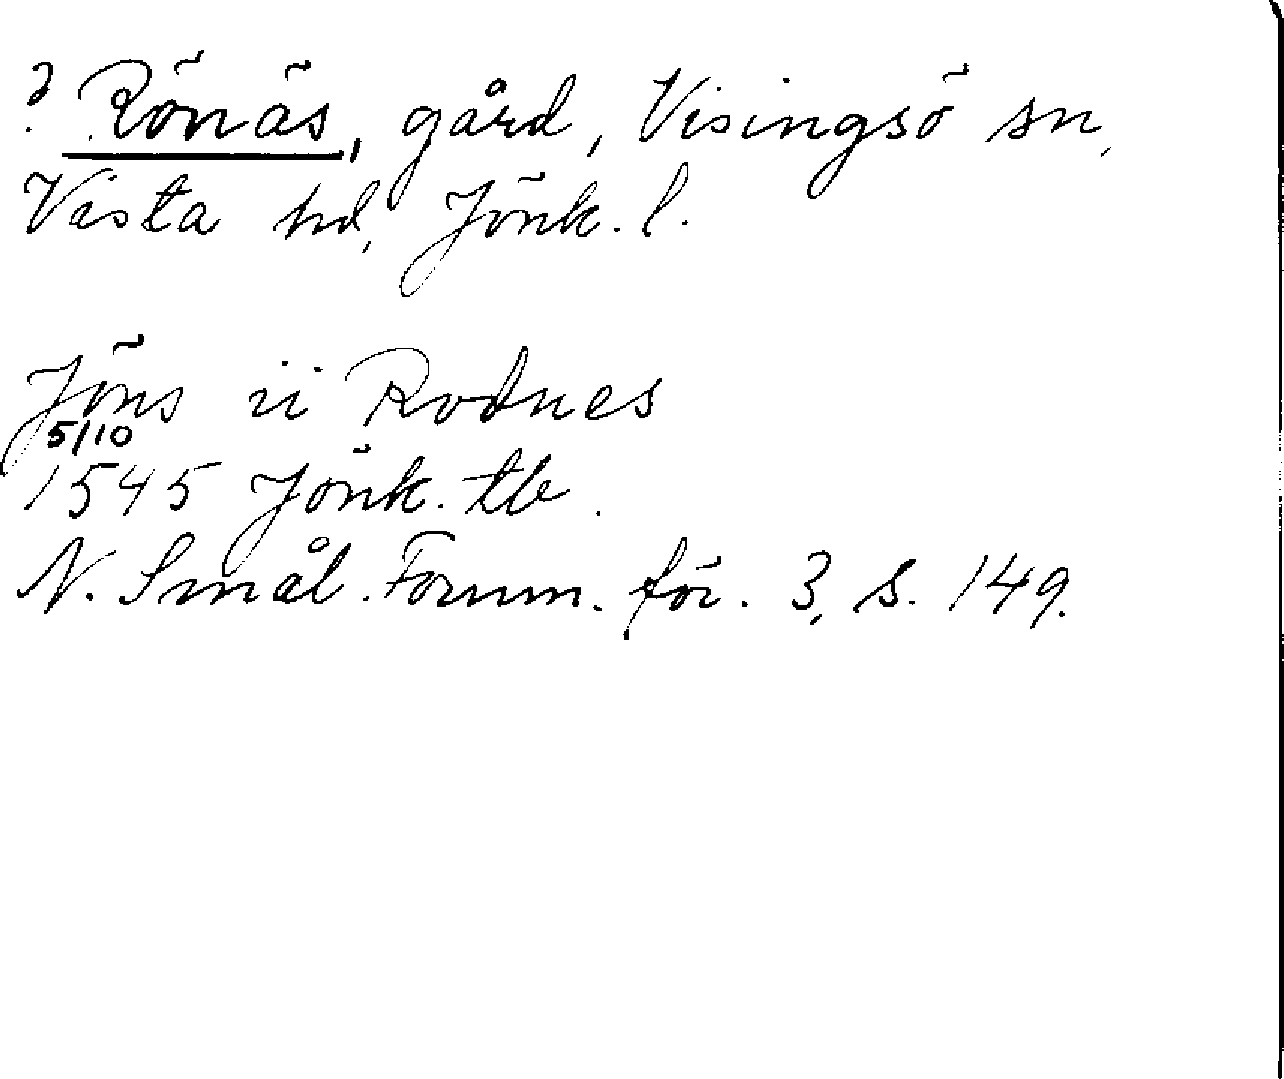 ? Rönäs, gård, Visingsö sn,
Vista hd, Jönk. l.
Jöns ii Rodnes
5/10
1545 Jönk. tb.
N. Smål. Fornm. för. 3, s. 149.